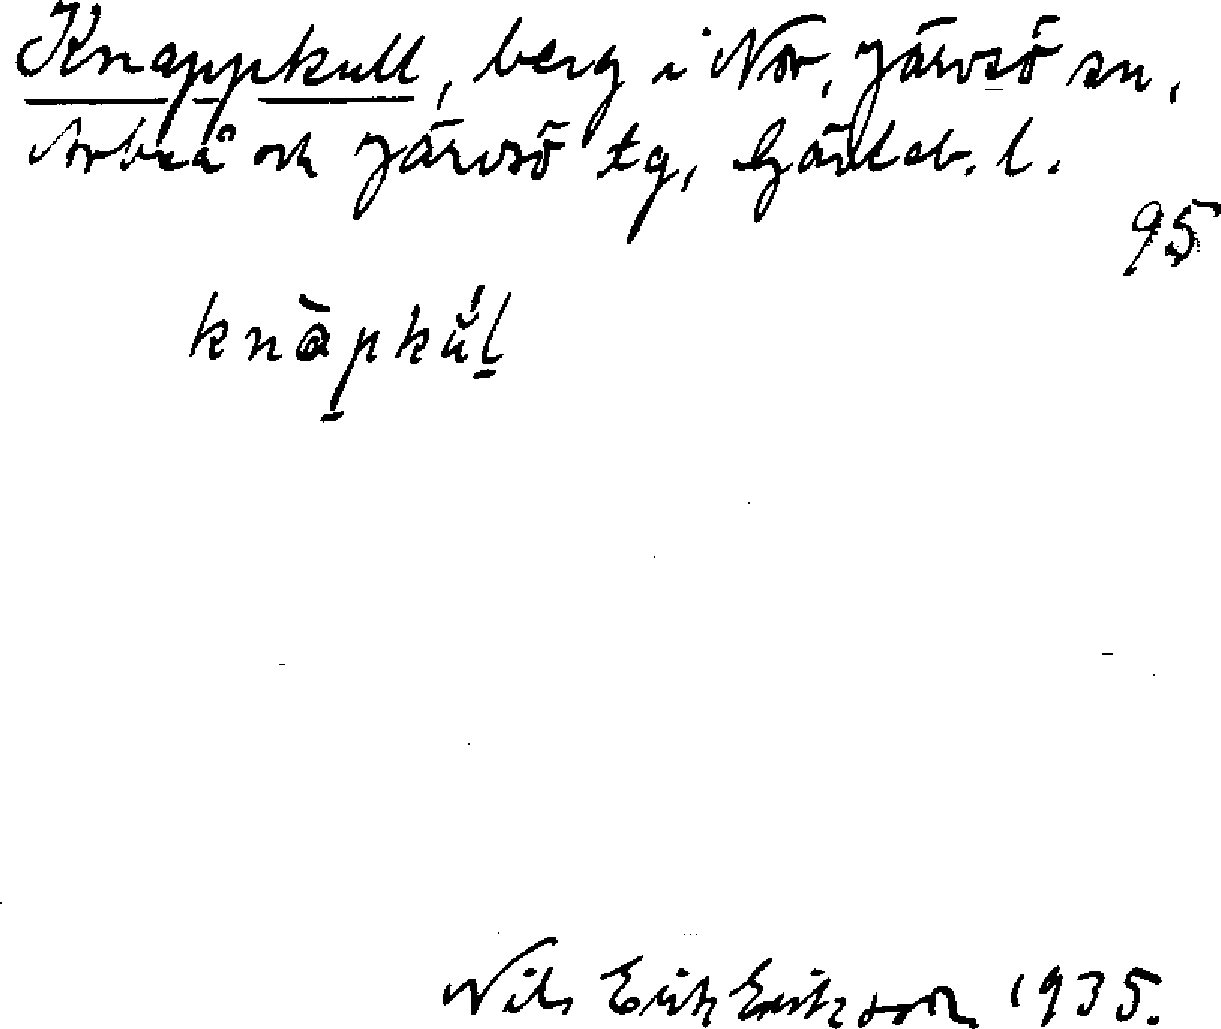 Knappkull, berg i Nor, Järvsö sn,
Arbrå och Järvsö tg, Gävleb. l.
95
knàpkúl
Nils Erik Eriksson 1935.